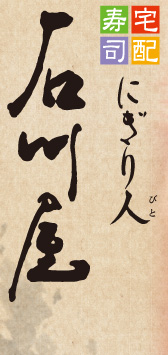 宅配
寿司
にぎり人
びと
石川屋